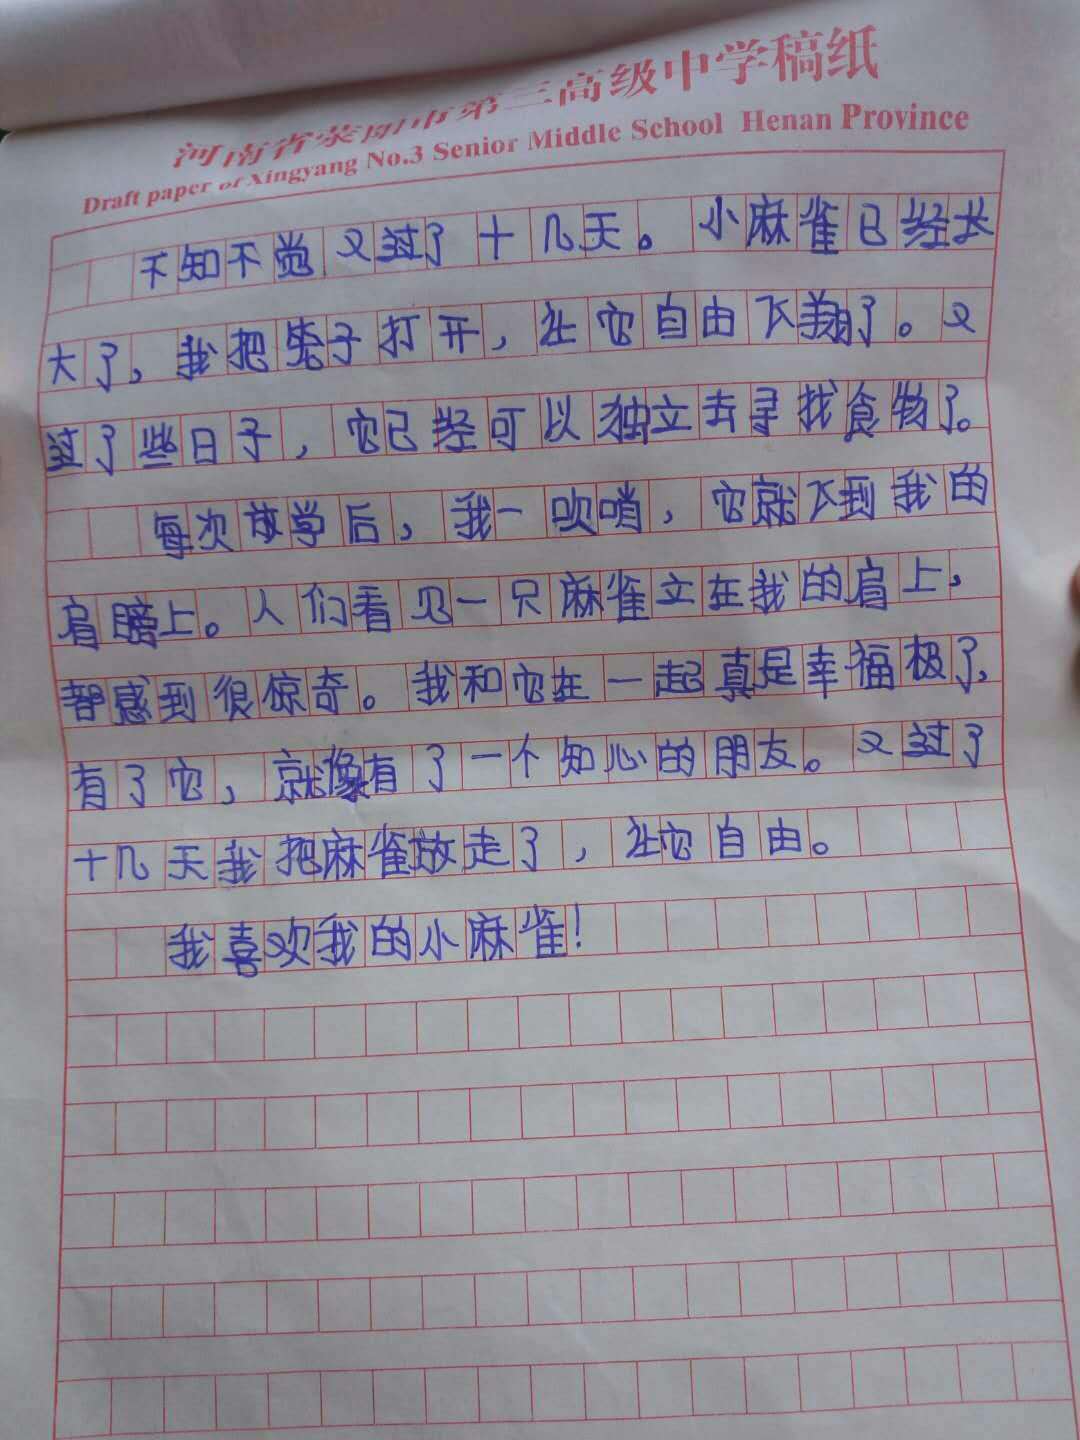 河南省荥阳市第三高级中学稿纸
Draft paper of Xingyang No.3 Senior Middle School Henan Province
不知不觉又过了十几天。小麻雀已经长
大了,我把笼子打开,让它自由飞翔了。又
过了些日子,它已经可以独立去寻找食物了。
每次放学后,我一吹哨,它就飞到我的
肩膀上。人们看见一只麻雀立在我的肩上,
都感到很惊奇。我和它在一起真是幸福极了,
有了它,就像有了一个知心的朋友。又过了
十几天我把麻雀放走了,让它自由。
我喜欢我的小麻雀!